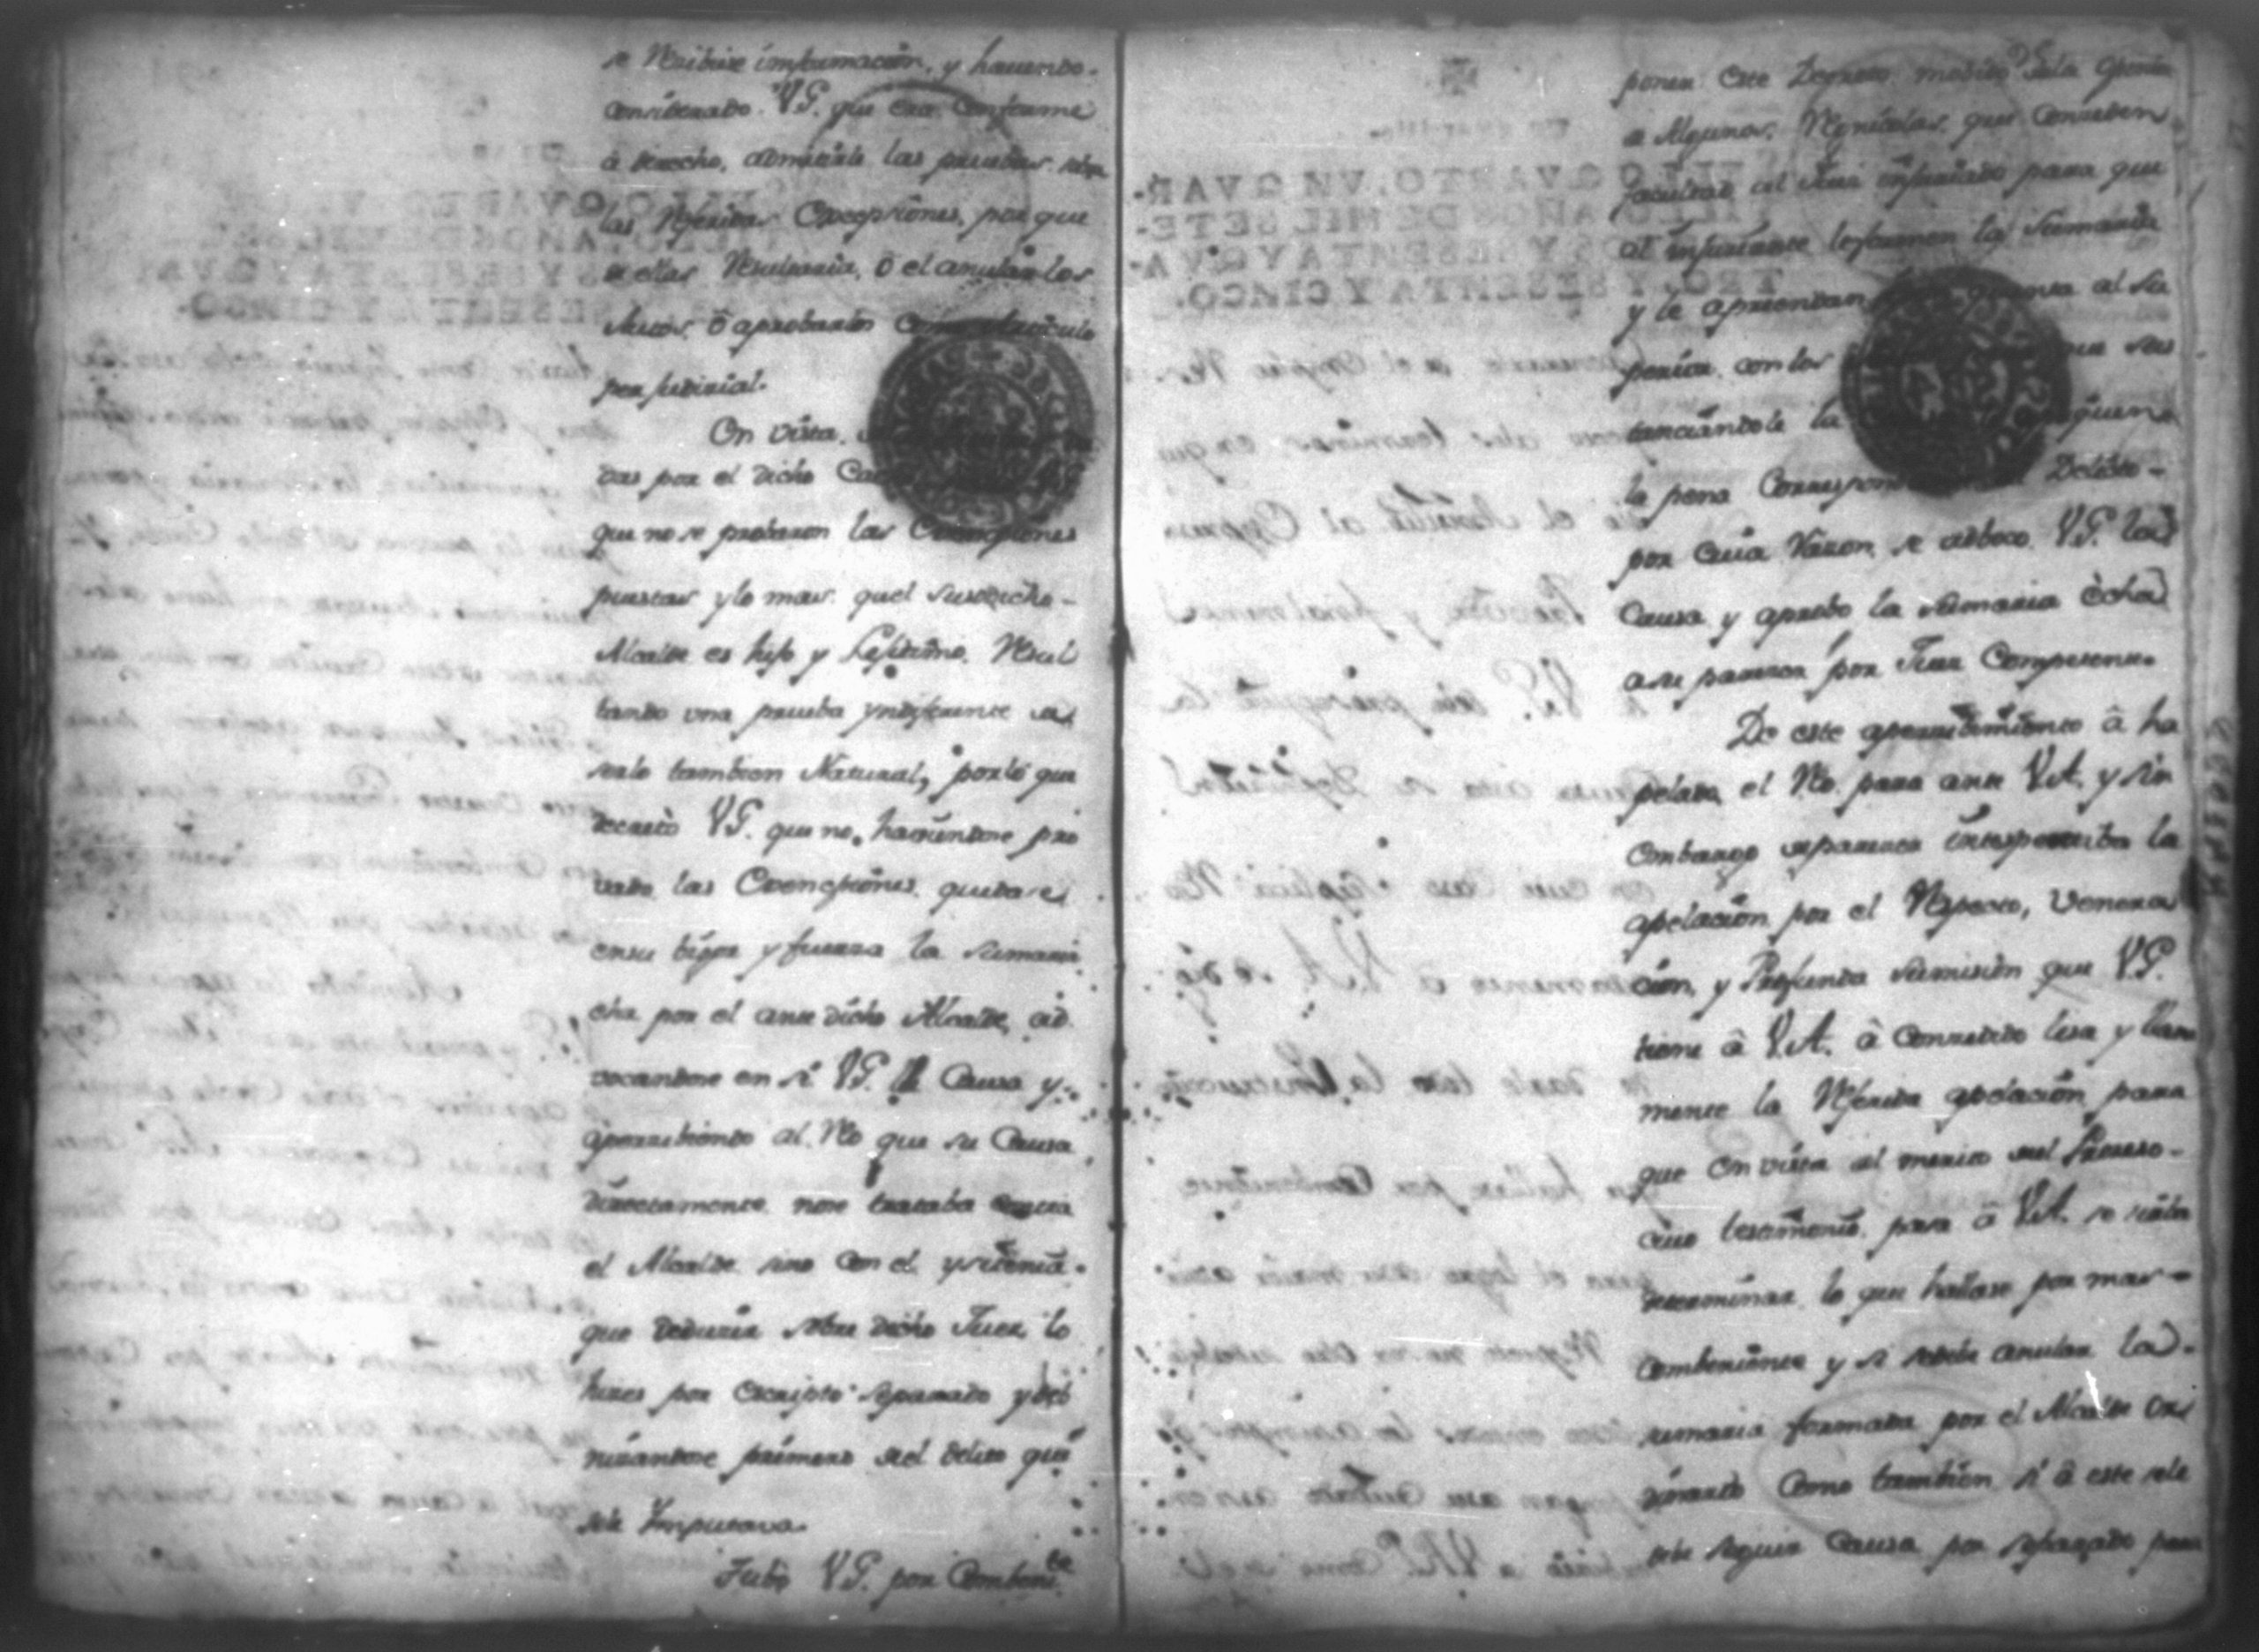 se Recibiese imformacion, y haviendo
considerado VS. que era conforme
á derecho, admitirle las pruebas sobre
las referidas Excepsiones, por que
de ellas Resultaria, ô el anular los
Autos, ô aprobarlos
perjudicial.
En vista
das por el dicho
que no se probaron las Excenpsiones
puestas y lo mas quel susodicho
Alcalde es hijo y Lexitimo, Resul
tando vna prueba yndiferente de
serlo tambien Natural, por lo que
decretò VS. que no haviendose pro
vado las Excenpsiones quedase
ensu bigor y fuerza la sumaria
echa por el ante dicho Alcalde, ad
vocandose en si VS. la Causa y
apercibiendo al Reo que su Causa
directamente nose trataba contra
el Alcalde sino con el y si tenia
que deducir sobre dicho Juez lo
hiziese por escripto separado y
primero del delito que
sele Ymputava.
Jubo VS. por Combente
poner este Decreto movido de la
a Algunos Regnicolas que conceden
facultad al Juez injuriado para que
al injuriante le formen la Sumaria
y le aprehendan cuenta al Su
perior con los para que sus
tanciandole la
la pena Correspondiente Delicto
por cuia Razon se adboco VS. la
Causa y aprobo la sumaria êcha
a su parecer por Juez Competente.
De este apercibimiento â ha
pelado el Reo para ante V.A. y sin
embargo de parecer intespectiba la
apelacion por el Respecto, Venera
cion, y Profunda Sumision que VS.
tiene â V.A. â Consedido lisa y llana
mente la Referida apelacion para
que en vista del merito del Proceso
cuio testimonio pasa â V.A. se sirba
determinar lo que hallase por mas
Combeniente y si debe anular la
sumaria formada por el Alcalde Ord
dinario como tambien si â este sele
debe seguir Causa por separado para